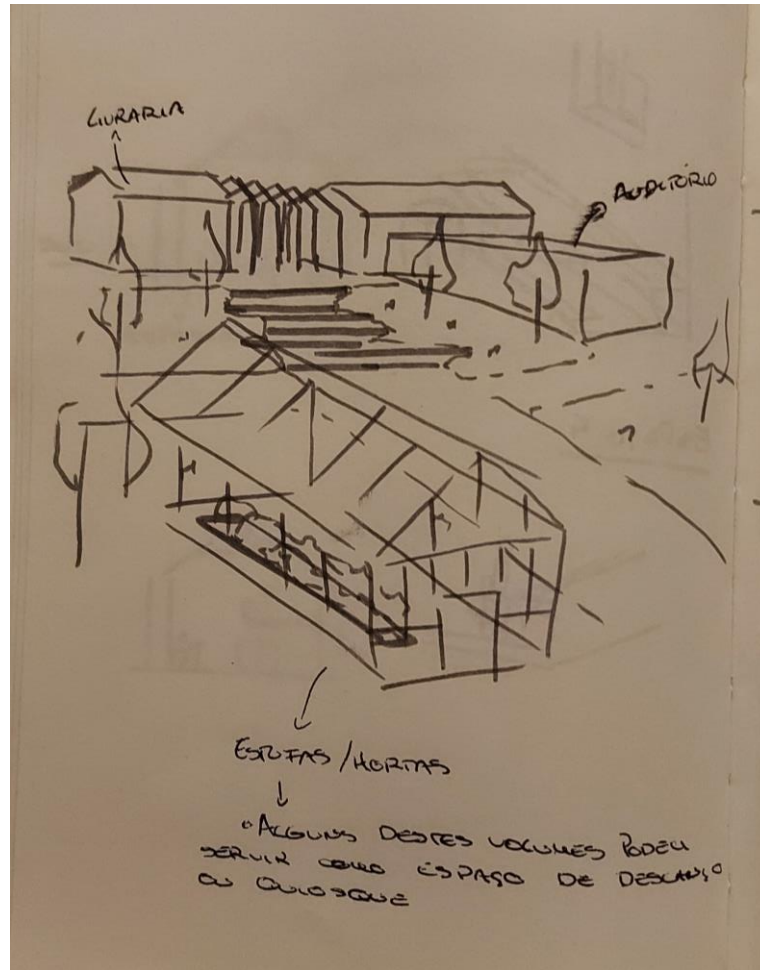 LIVRARIA
AUDITÓRIO
ESTUFAS/HORTAS
• ALGUNS DESTES VOLUMES PODEM
SERVIR COMO ESPAÇO DE DESCANSO
OU QUIOSQUE